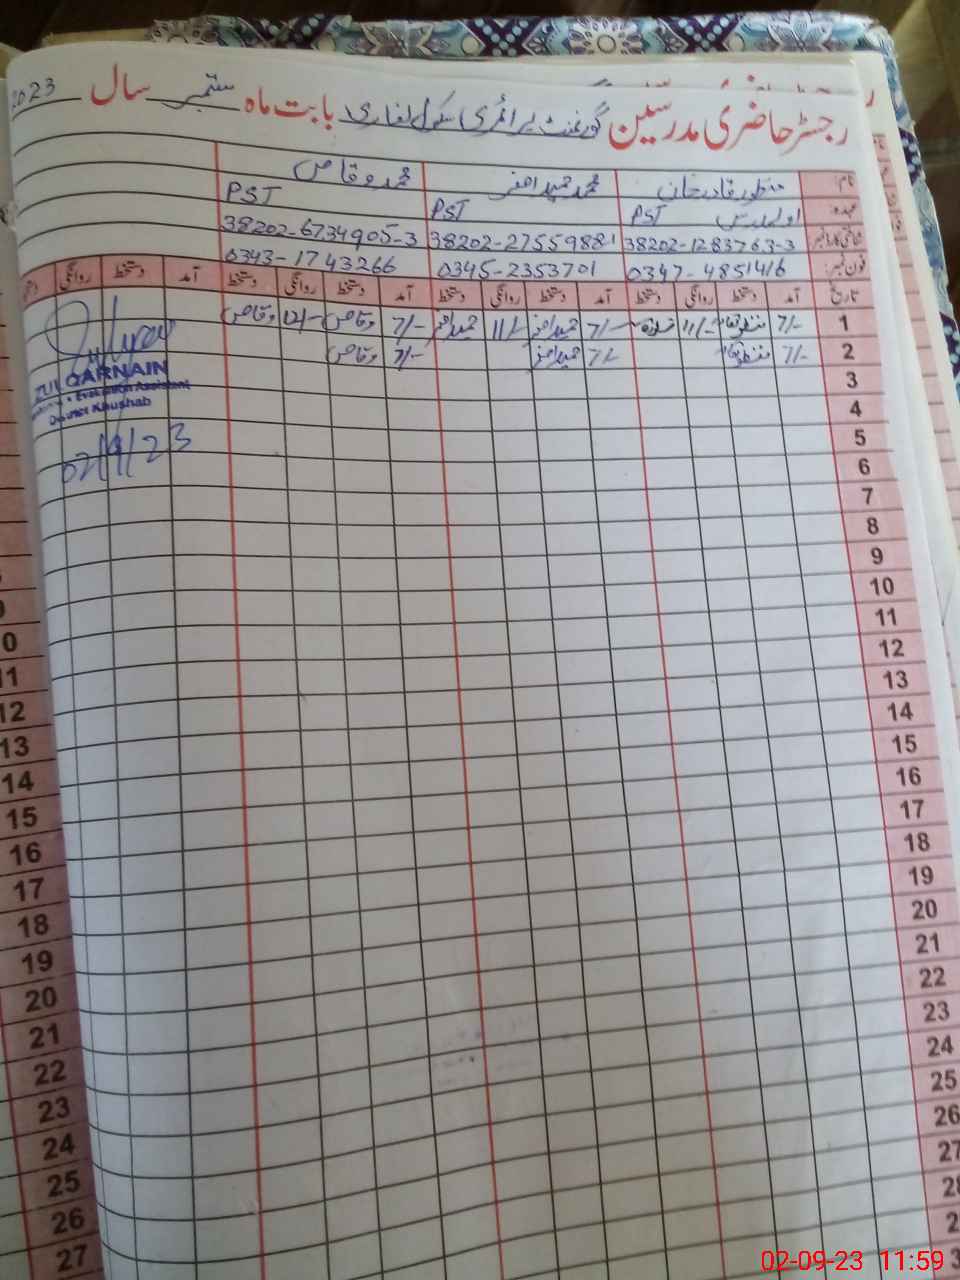 رجسٹر حاضری مدرسین گورنمنٹ پرائمری سکول لغاری بابت ماہ ستمبر سال 2023
نام: منظور قادر خان محمد حمید اصغر محمد وقاص
عہدہ: اول مدرس PST PST PST
شناختی کارڈ نمبر 38202-1283763-3 38202-27559881 38202-6734905-3
فون نمبر: 0347-4851416 0345-2353701 0343-1743266
تاریخ آمد دستخط روانگی دستخط آمد دستخط روانگی دستخط آمد دستخط روانگی دستخط آمد دستخط روانگی
1 7/- 11/- 7/- 11/- 7/- وقاص 12/- وقاص
2 7/- 7/- 7/- وقاص
3
4
5
6
7
8
9
10
11
12
13
14
15
16
17
18
19
20
21
22
23
24
25
26
27
ZULQARNAIN
Evaluation Assistant
District Khushab
02/9/23
12
13
14
15
16
17
18
19
20
21
22
23
24
25
26
27
02-09-23 11:59